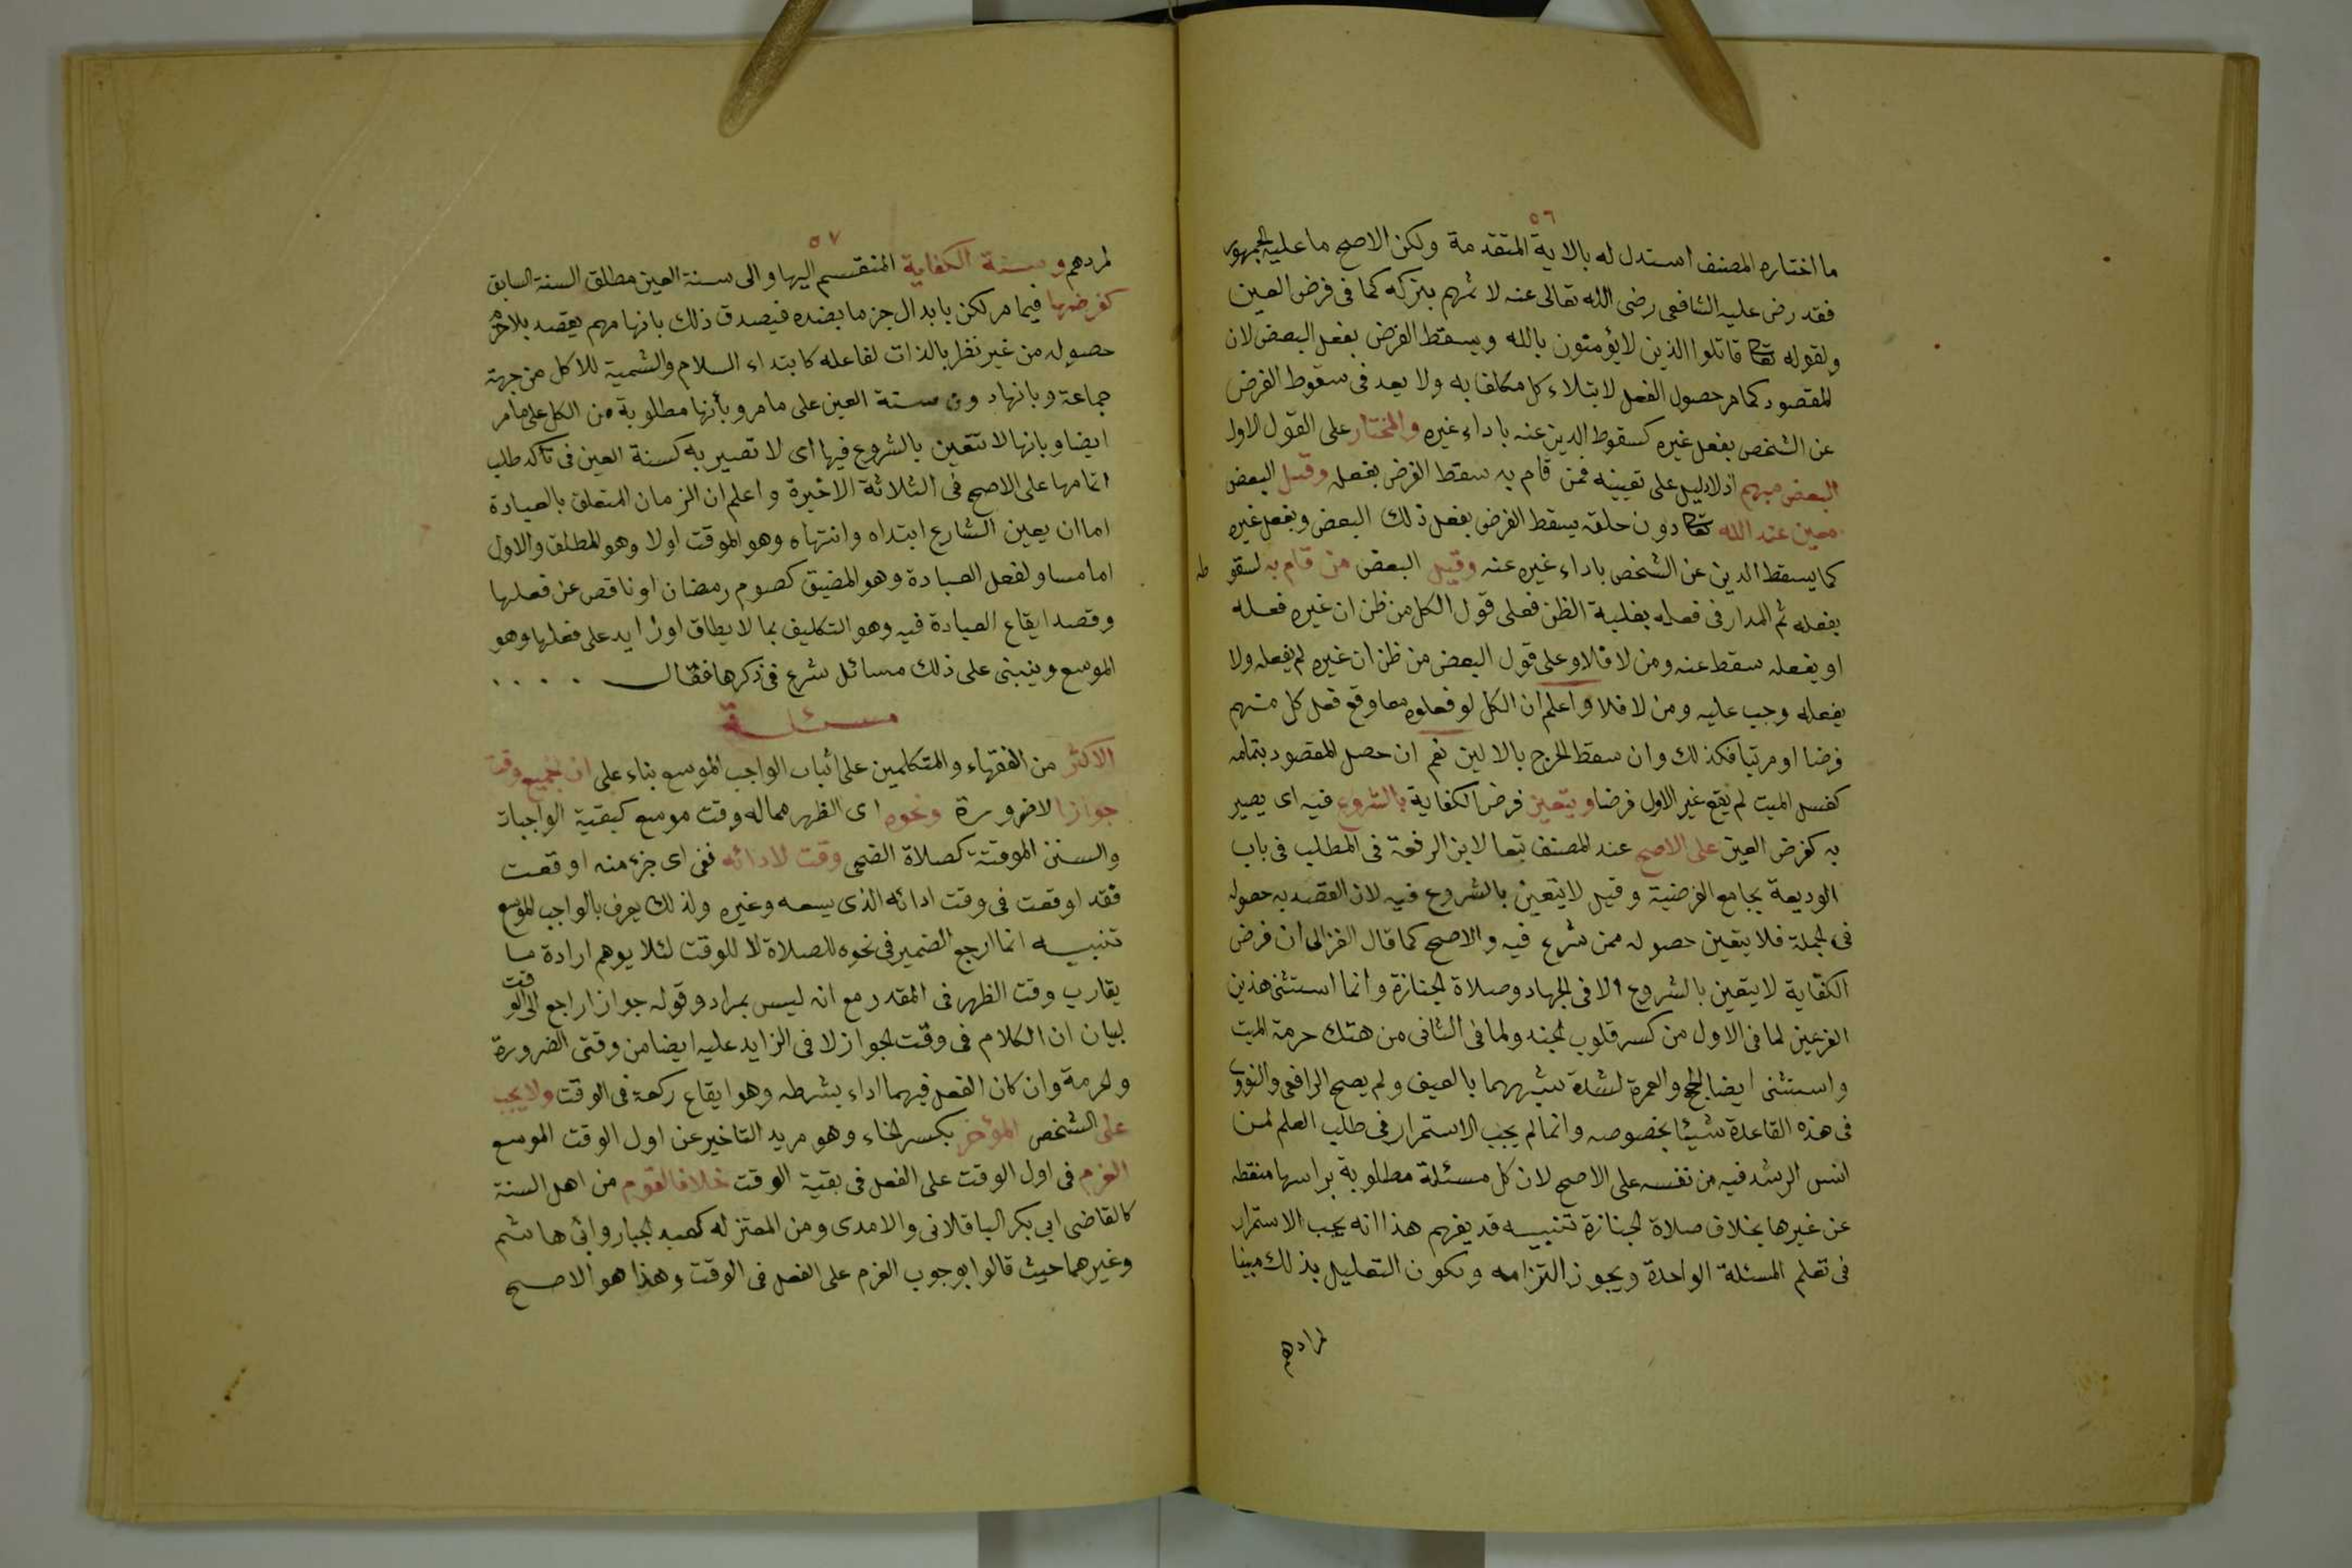 ٥٦
ما اختاره المصنف استدل له بالاية المتقدمة ولكن الاصح ما عليه الجمهور
فقد رض عليه الشافعى رضى الله تعالى عنه لاثمهم بتركه كما فى فرض العين
ولقوله تعالى قاتلوا الذين لا يؤمنون بالله ويسقط الفرض بفعل البعض لان
المقصود كما مر حصول الفعل لابتلاء كل مكلف به ولا يعد فى سقوط الفرض
عن الشخص بفعل غيره كسقوط الدين عنه باداء غيره والمختار على القول الاول
البعض مبهم اذ لا دليل على تعيينه فمن قام به سقط الفرض بفعله وقيل البعض
معين عند الله تعالى دون خلقه يسقط الفرض بفعل ذلك البعض وبفعل غيره
كما يسقط الدين عن الشخص باداء غيره عنه وقيل البعض من قام به لسقو طه
بفعله ثم المدار فى فعله بغلبة الظن فعلى قول الكل من ظن ان غيره فعله
او يفعله سقط عنه ومن لا فلا وعلى قول البعض من ظن ان غيره لم يفعله ولا
يفعله وجب عليه ومن لا فلا واعلم ان الكل لو فعلوه معا وقع فعل كل منهم
فرضا او مرتبا فكذلك وان سقط الحرج بالاولين نعم ان حصل المقصود بتمامه
كغسل الميت لم يقع غير الاول فرضا ويتعين فرض الكفاية بالشروع فيه اى يصير
به كفرض العين على الاصح عند المصنف تبعا لابن الرفعة فى المطلب فى باب
الوديعة بجامع الفرضية وقيل لا يتعين بالشروع فيه لان القصد به حصوله
فى الجملة فلا يتعين حصوله ممن شرع فيه والاصح كما قال الغزالى ان فرض
الكفاية لا يتعين بالشروع الا فى الجهاد وصلاة الجنازة وانما استثنى هذين
الفرعين لما فى الاول من كسر قلوب الجند ولما فى الثانى من هتك حرمة الميت
واستثنى ايضا الحج والعمرة لشدة شبههما بالعيف ولم يصح الرافعى والنووى
فى هذه القاعدة شيئا بخصوصه وانما لم يجب الاستمرار فى طلب العلم لمن
انس الرشد فيه من نفسه على الاصح لان كل مسئلة مطلوبة براسها منقطه
عن غيرها بخلاف صلاة الجنازة تنبيه قد يفهم هذا انه يجب الاستمرار
فى تعلم المسئلة الواحدة ويجوز التزامه ويكون التعليل بذلك مبينا
لمرادهم
٥٧
لمردهم وسنة الكفاية المنقسم اليها والى سنة العين مطلق السنة السابق
كفرضها فيما مر لكن بابدال جزما بضده فيصدق ذلك بانها مهم يقصد بلا جزم
حصوله من غير نظر بالذات لفاعله كابتداء السلام والتسمية للاكل من جهة
جماعة وبانها دون سنة العين على ما مر وبأنها مطلوبة من الكل على ما مر
ايضا وبانها لا تتعين بالشروع فيها اى لا تصير به كسنة العين فى تأكد طلب
اتمامها على الاصح فى الثلاثة الاخيرة واعلم ان الزمان المتعلق بالعبادة
اما ان يعين الشارع ابتداه وانتهاه وهو الموقت اولا وهو المطلق والاول
اما مساو لفعل العبادة وهو المضيق كصوم رمضان او ناقص عن فعلها
وقصد ايقاع العبادة فيه وهو التكليف بما لا يطاق او زايد على فعلها وهو
الموسع وينبنى على ذلك مسائل شرع فى ذكرها فقال
مسئلة
الاكثر من الفقهاء والمتكلمين على اثبات الواجب الموسع بناء على ان جميع وقت
جوازا لا ضرورة ونحوه اى الظهر مما له وقت موسع كبقية الواجبات
والسنن الموقتة كصلاة الضحى وقت لادائه ففى اى جزء منه اوقعت
فقد اوقعت فى وقت ادائه الذى يسعه وغيره ولذلك يعرف بالواجب الموسع
تنبيه انما ارجع الضمير فى نحوه للصلاة لا للوقت لئلا يوهم ارادة ما
يقارب وقت الظهر فى المقدر مع انه ليس بمراد وقوله جوازا راجع الى الوقت
لبيان ان الكلام فى وقت الجواز لا فى الزايد عليه ايضا من وقتى الضرورة
والحرمة وان كان الفعل فيهما اداء بشرطه وهو ايقاع ركعة فى الوقت ولا يجب
على الشخص المؤخر بكسر الخاء وهو مريد التاخير عن اول الوقت الموسع
العزم فى اول الوقت على الفعل فى بقية الوقت خلافا لقوم من اهل السنة
كالقاضى ابى بكر الباقلانى والامدى ومن المعتزله كعبد الجبار وابى هاشم
وغيرهما حيث قالوا بوجوب العزم على الفعل فى الوقت وهذا هو الاصح